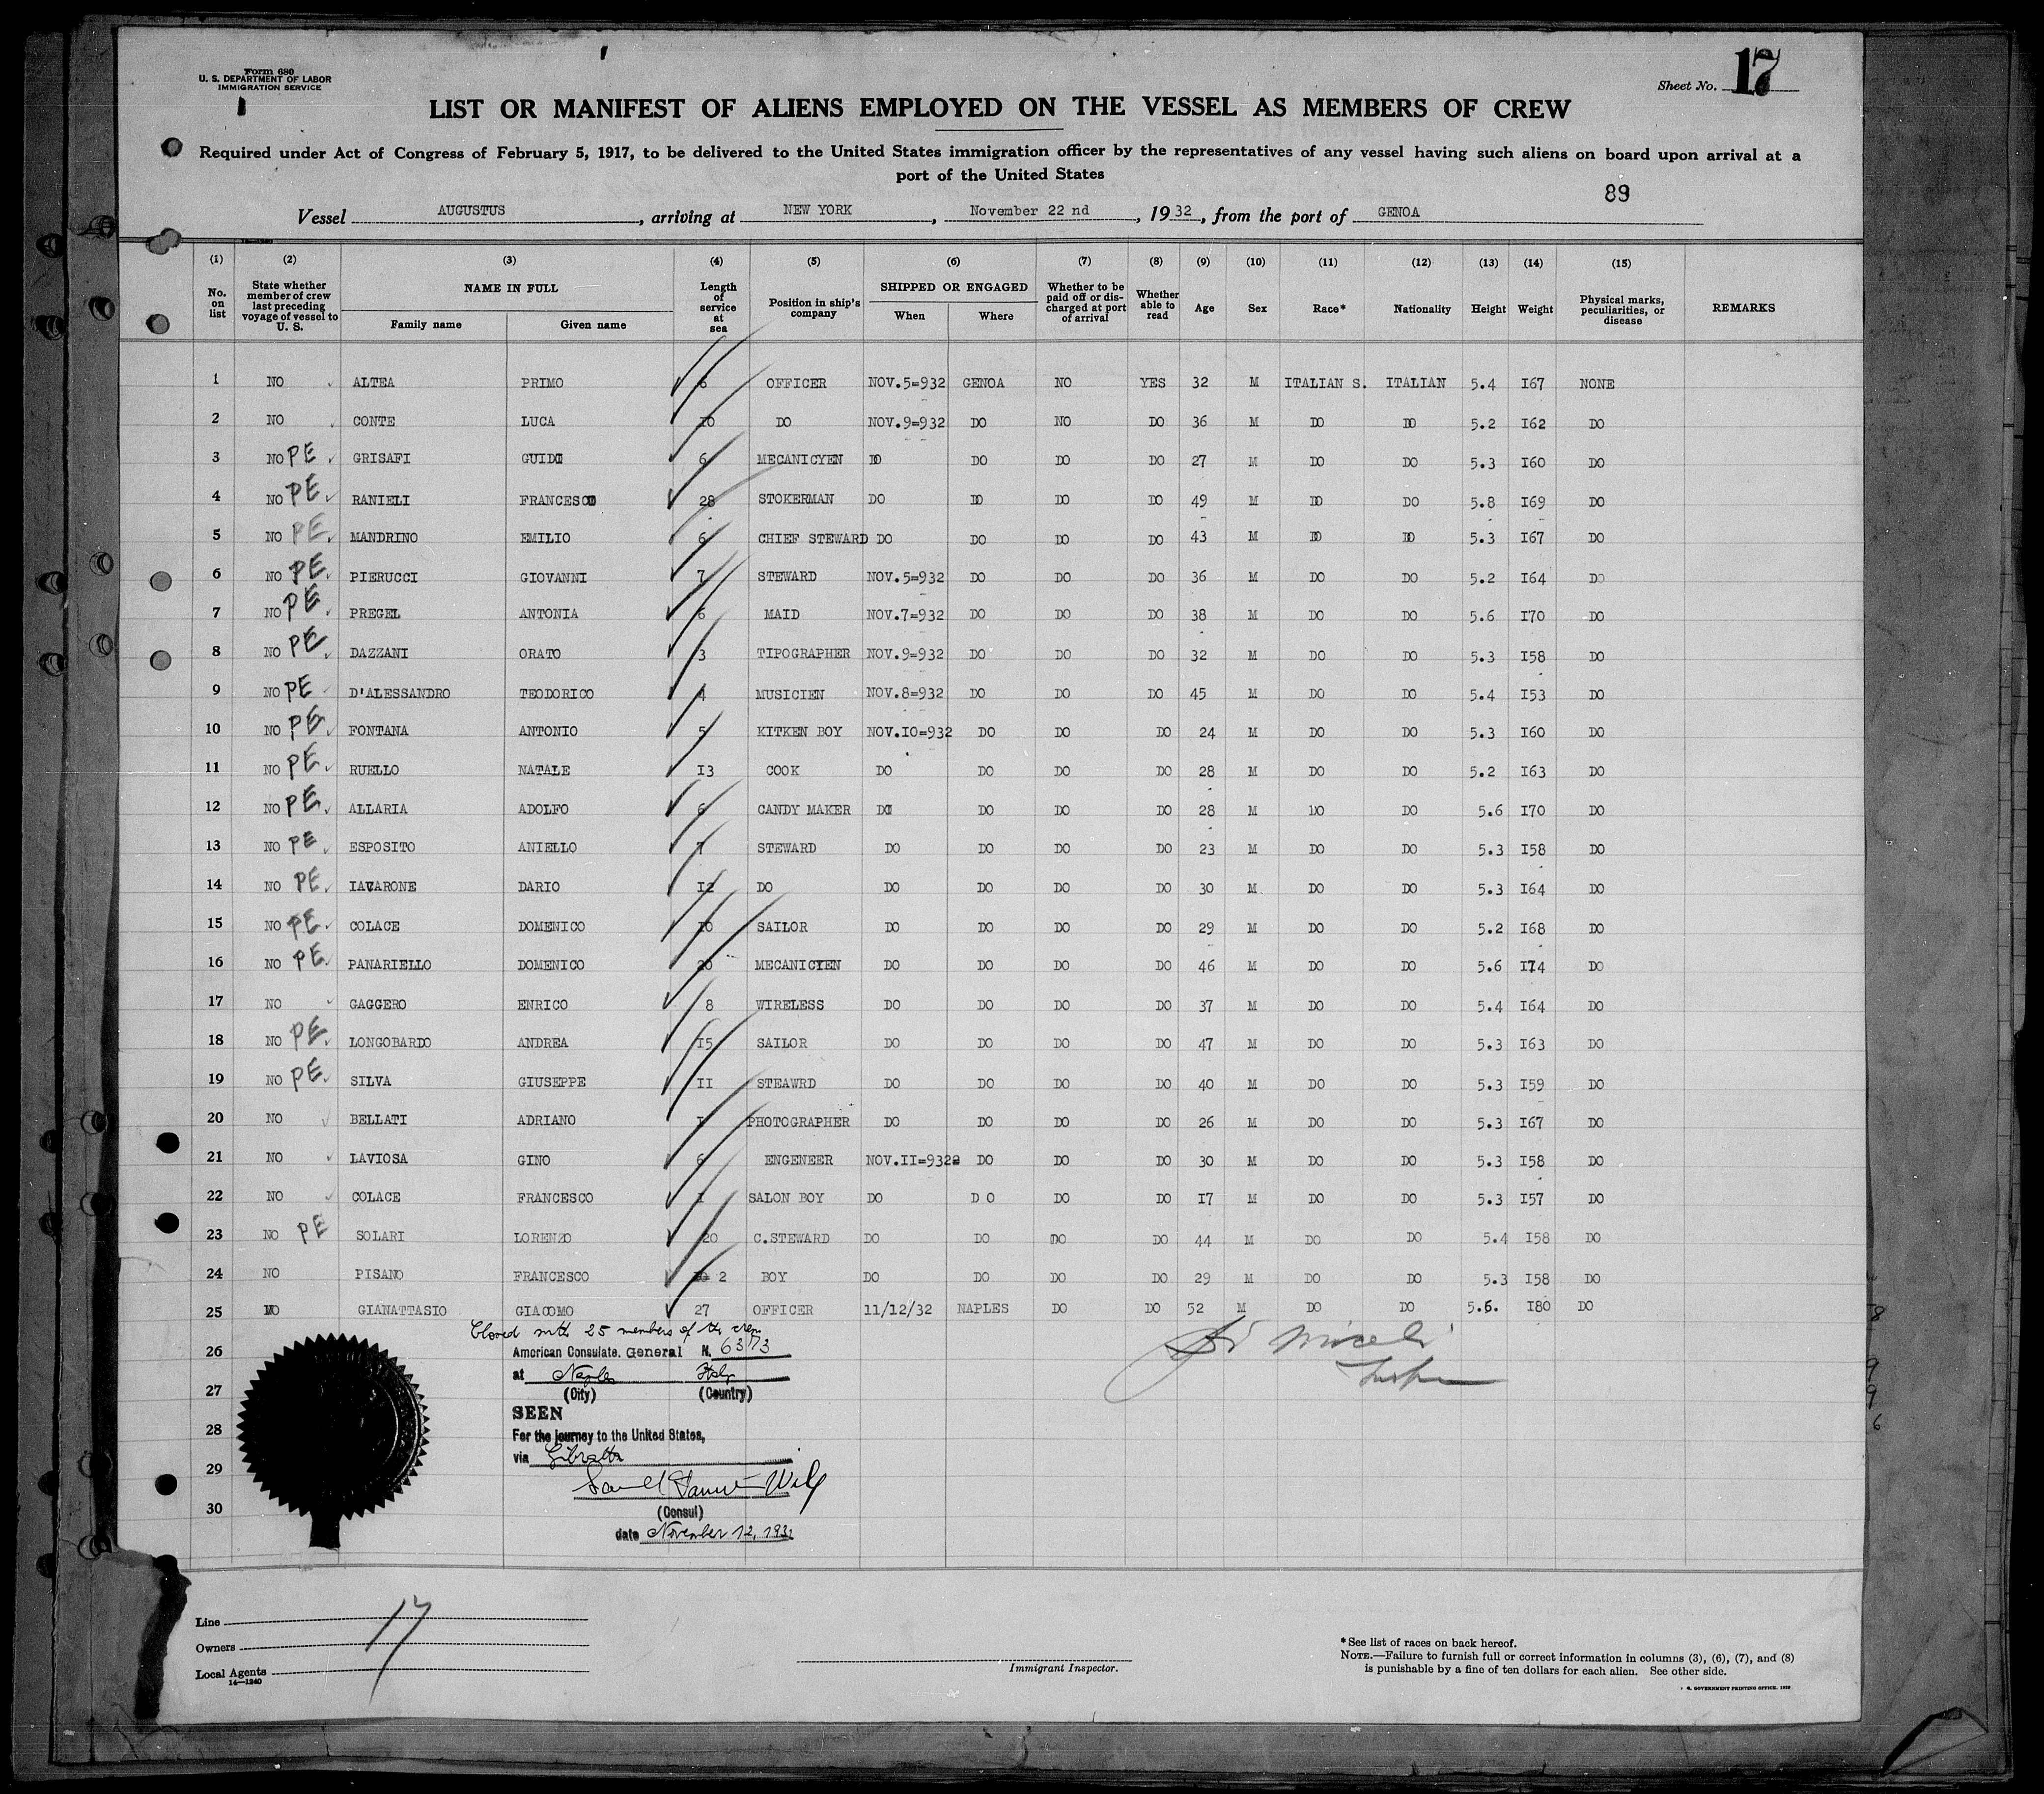 Form 680
U. S. DEPARTMENT OF LABOR
IMMIGRATION SERVICE
Sheet No. 17
LIST OR MANIFEST OF ALIENS EMPLOYED ON THE VESSEL AS MEMBERS OF CREW
Required under Act of Congress of February 5, 1917, to be delivered to the United States immigration officer by the representatives of any vessel having such aliens on board upon arrival at a
port of the United States
89
Vessel AUGUSTUS, arriving at NEW YORK, November 22 nd, 1932, from the port of GENOA
(1) (2) (3) (4) (5) (6) (7) (8) (9) (10) (11) (12) (13) (14) (15)
No. on list State whether member of crew last preceding voyage of vessel to U. S. NAME IN FULL Family name Given name Length of service at sea Position in ship's company SHIPPED OR ENGAGED When Where Whether to be paid off or discharged at port of arrival Whether able to read Age Sex Race* Nationality Height Weight Physical marks, peculiarities, or disease REMARKS
1 NO ALTEA PRIMO 6 OFFICER NOV.5=932 GENOA NO YES 32 M ITALIAN S. ITALIAN 5.4 I67 NONE
2 NO CONTE LUCA I0 DO NOV.9=932 DO NO DO 36 M DO DO 5.2 I62 DO
3 NO PE GRISAFI GUIDO 6 MECANICYEN DO DO DO DO 27 M DO DO 5.3 I60 DO
4 NO PE RANIELI FRANCESCO 28 STOKERMAN DO DO DO DO 49 M DO DO 5.8 I69 DO
5 NO PE MANDRINO EMILIO 6 CHIEF STEWARD DO DO DO DO 43 M DO DO 5.3 I67 DO
6 NO PE PIERUCCI GIOVANNI 7 STEWARD NOV.5=932 DO DO DO 36 M DO DO 5.2 I64 DO
7 NO PE PREGEL ANTONIA 6 MAID NOV.7=932 DO DO DO 38 M DO DO 5.6 I70 DO
8 NO PE DAZZANI ORATO 3 TIPOGRAPHER NOV.9=932 DO DO DO 32 M DO DO 5.3 I58 DO
9 NO PE D'ALESSANDRO TEODORICO 4 MUSICIEN NOV.8=932 DO DO DO 45 M DO DO 5.4 I53 DO
10 NO PE FONTANA ANTONIO 5 KITKEN BOY NOV.I0=932 DO DO DO 24 M DO DO 5.3 I60 DO
11 NO PE RUELLO NATALE I3 COOK DO DO DO DO 28 M DO DO 5.2 I63 DO
12 NO PE ALLARIA ADOLFO 6 CANDY MAKER DO DO DO DO 28 M DO DO 5.6 I70 DO
13 NO PE ESPOSITO ANIELLO 7 STEWARD DO DO DO DO 23 M DO DO 5.3 I58 DO
14 NO PE IAVARONE DARIO I2 DO DO DO DO DO 30 M DO DO 5.3 I64 DO
15 NO PE COLACE DOMENICO I0 SAILOR DO DO DO DO 29 M DO DO 5.2 I68 DO
16 NO PE PANARIELLO DOMENICO 20 MECANICYEN DO DO DO DO 46 M DO DO 5.6 I74 DO
17 NO GAGGERO ENRICO 8 WIRELESS DO DO DO DO 37 M DO DO 5.4 I64 DO
18 NO PE LONGOBARDO ANDREA I5 SAILOR DO DO DO DO 47 M DO DO 5.3 I63 DO
19 NO PE SILVA GIUSEPPE II STEAWRD DO DO DO DO 40 M DO DO 5.3 I59 DO
20 NO BELLATI ADRIANO I PHOTOGRAPHER DO DO DO DO 26 M DO DO 5.3 I67 DO
21 NO LAVIOSA GINO 6 ENGENEER NOV.II=932 DO DO DO 30 M DO DO 5.3 I58 DO
22 NO COLACE FRANCESCO I SALON BOY DO D O DO DO I7 M DO DO 5.3 I57 DO
23 NO PE SOLARI LORENZO 20 C.STEWARD DO DO DO DO 44 M DO DO 5.4 I58 DO
24 NO PISANO FRANCESCO 2 BOY DO DO DO DO 29 M DO DO 5.3 I58 DO
25 NO GIANATTASIO GIACOMO 27 OFFICER 11/12/32 NAPLES DO DO 52 M DO DO 5.6. I80 DO
Closed with 25 members of the crew
26 American Consulate. General N. 6373
at Naples Italy
27 (City) (Country)
SEEN
28 For the journey to the United States,
via Gibraltar
29
30 (Consul)
date November 12, 1932
Line
17
Owners
Local Agents
14—1240
Immigrant Inspector.
*See list of races on back hereof.
NOTE.—Failure to furnish full or correct information in columns (3), (6), (7), and (8)
is punishable by a fine of ten dollars for each alien. See other side.
GOVERNMENT PRINTING OFFICE